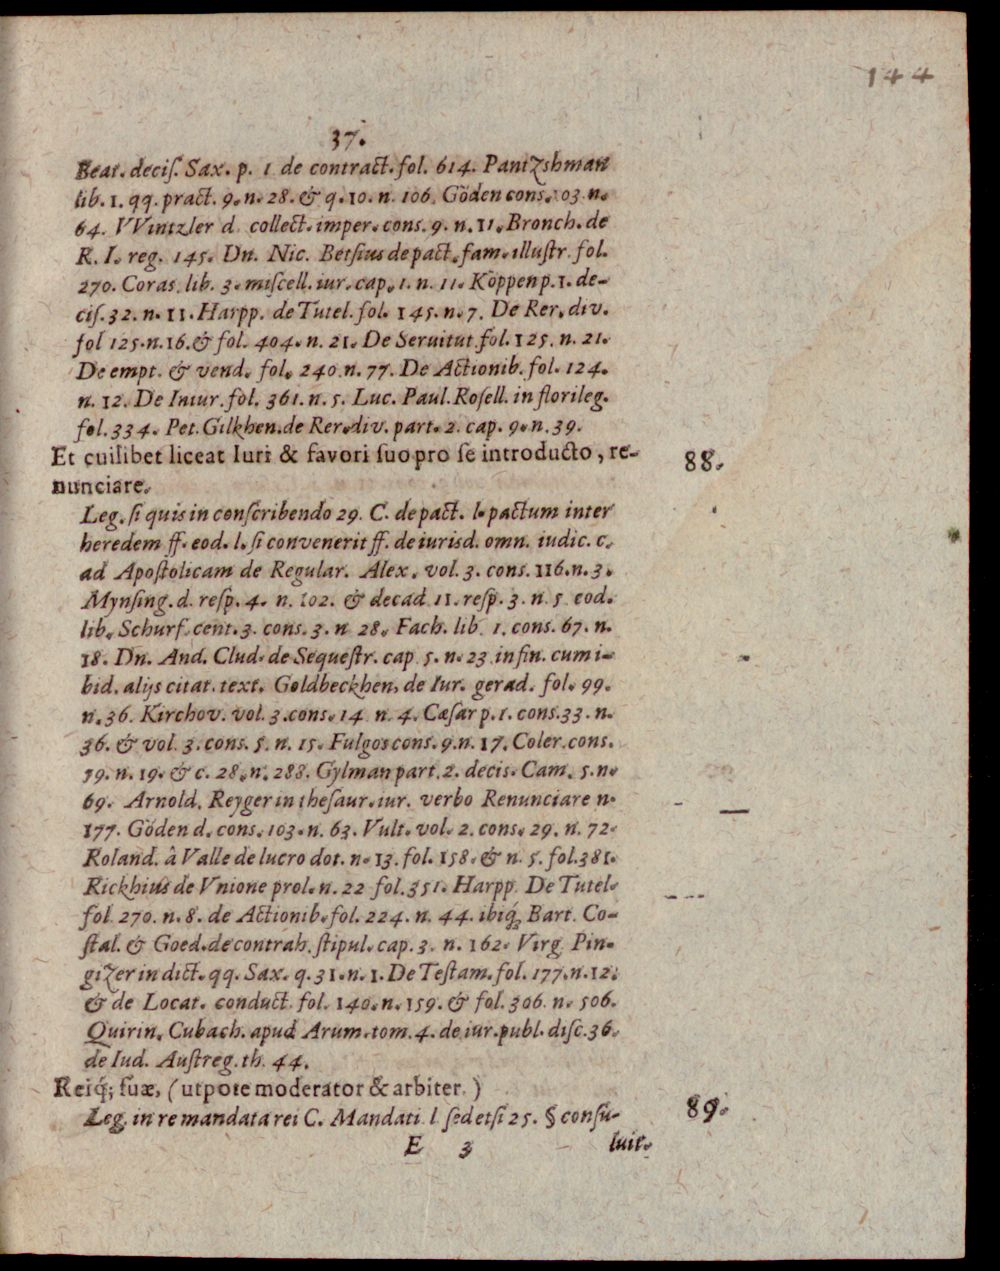 144
37.
Beat. deciſ. Sax. p. 1 de contract. fol. 614. Pantzshman
lib. 1. qq. pract. 9. n. 28. & q. 10. n. 106. Göden cons. 103 n.
64. VVintzler d. collect. imper. cons. 9. n. 11. Bronch. de
R. I. reg. 145. Dn. Nic. Betſius de pact. fam. illuſtr. fol.
270. Coras. lib. 3. miſcell. iur. cap. 1. n. 11. Köppen p. 1. de-
ciſ. 32. n. 11. Harpp. de Tutel. fol. 145. n. 7. De Rer. div.
fol 125. n. 16. & fol. 404. n. 21. De Seruitut. fol. 125. n. 21.
De empt. & vend. fol. 240. n. 77. De Actionib. fol. 124.
n. 12. De Iniur. fol. 361. n. 5. Luc. Paul. Roſell. in florileg.
fol. 334. Pet. Gilkhen. de Rer. div. part. 2. cap. 9. n. 39.
Et cuilibet liceat Iuri & favori ſuo pro ſe introducto, re-
nunciare.
88.
Leg. ſi quis in conſcribendo 29. C. de pact. l. pactum inter
heredem ff. eod. l. ſi convenerit ff. de iurisd. omn. iudic. c.
ad Apoſtolicam de Regular. Alex. vol. 3. cons. 116. n. 3.
Mynſing. d. reſp. 4. n. 102. & decad 11. reſp. 3. n. 5 eod.
lib. Schurf. cent. 3. cons. 3. n 28. Fach. lib. 1. cons. 67. n.
18. Dn. And. Clud. de Sequeſtr. cap 5. n. 23 in fin. cum i-
bid. alijs citat. text. Goldbeckhen. de Iur. gerad. fol. 99.
n. 36. Kirchov. vol. 3. cons. 14 n. 4. Cæſar p. 1. cons. 33. n.
36. & vol 3. cons. 5. n. 15. Fulgos cons. 9. n. 17. Coler. cons.
39. n. 19. & c. 28. n. 288. Gylman part. 2. decis. Cam. 5. n.
69. Arnold. Reyger in theſaur. iur. verbo Renunciare n.
177. Göden d. cons. 103. n. 63. Vult. vol. 2. cons. 29. n. 72.
Roland. â Valle de lucro dot. n. 13. fol. 158. & n. 5. fol. 381.
Rickhius de Vnione prol. n. 22 fol. 351. Harpp. De Tutel.
fol 270. n. 8. de Actionib. fol. 224. n. 44. ibiq́; Bart. Co-
ſtal. & Goed. de contrah. ſtipul. cap. 3. n. 162. Virg. Pin-
gizer in dict. qq. Sax. q. 31. n. 1. De Teſtam. fol. 177. n. 12.
& de Locat. conduct. fol. 140. n. 159. & fol. 306. n. 506.
Quirin. Cubach. apud Arum. tom. 4. de iur. publ. diſc. 36.
de Iud. Auſtreg. th. 44.
Reiq́; ſuæ, (utpote moderator & arbiter.)
Leg. in re mandata rei C. Mandati l ſed etſi 25. § conſu-
89.
E 3
luit.